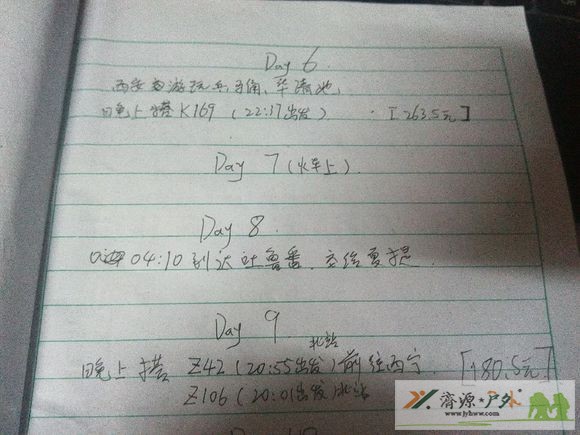 Day 6
西安南游玩兵马俑、华清池
晚上搭K169 (22:17出发) [263.5元]
Day 7 (火车上)
Day 8
04:10到达吐鲁番,
Day 9
北站
晚上搭 Z42 (20:55出发)前往西宁 [180.5元]
Z106 (20:01出发)
济源·户外
www.jyhww.com